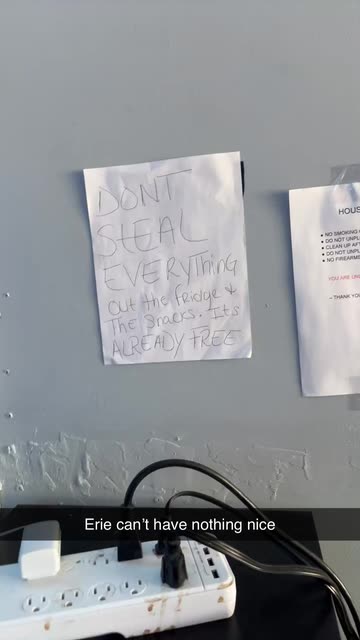 DONT
STEAL
EVERYThing
out the fridge &
The snacks. It's
ALREADY FREE
HOUS
• NO SMOKING
• DO NOT UNPL
• CLEAN UP AFT
• DO NOT UNPL
• NO FIREARMS
YOU ARE UN
– THANK YOU
Erie can't have nothing nice